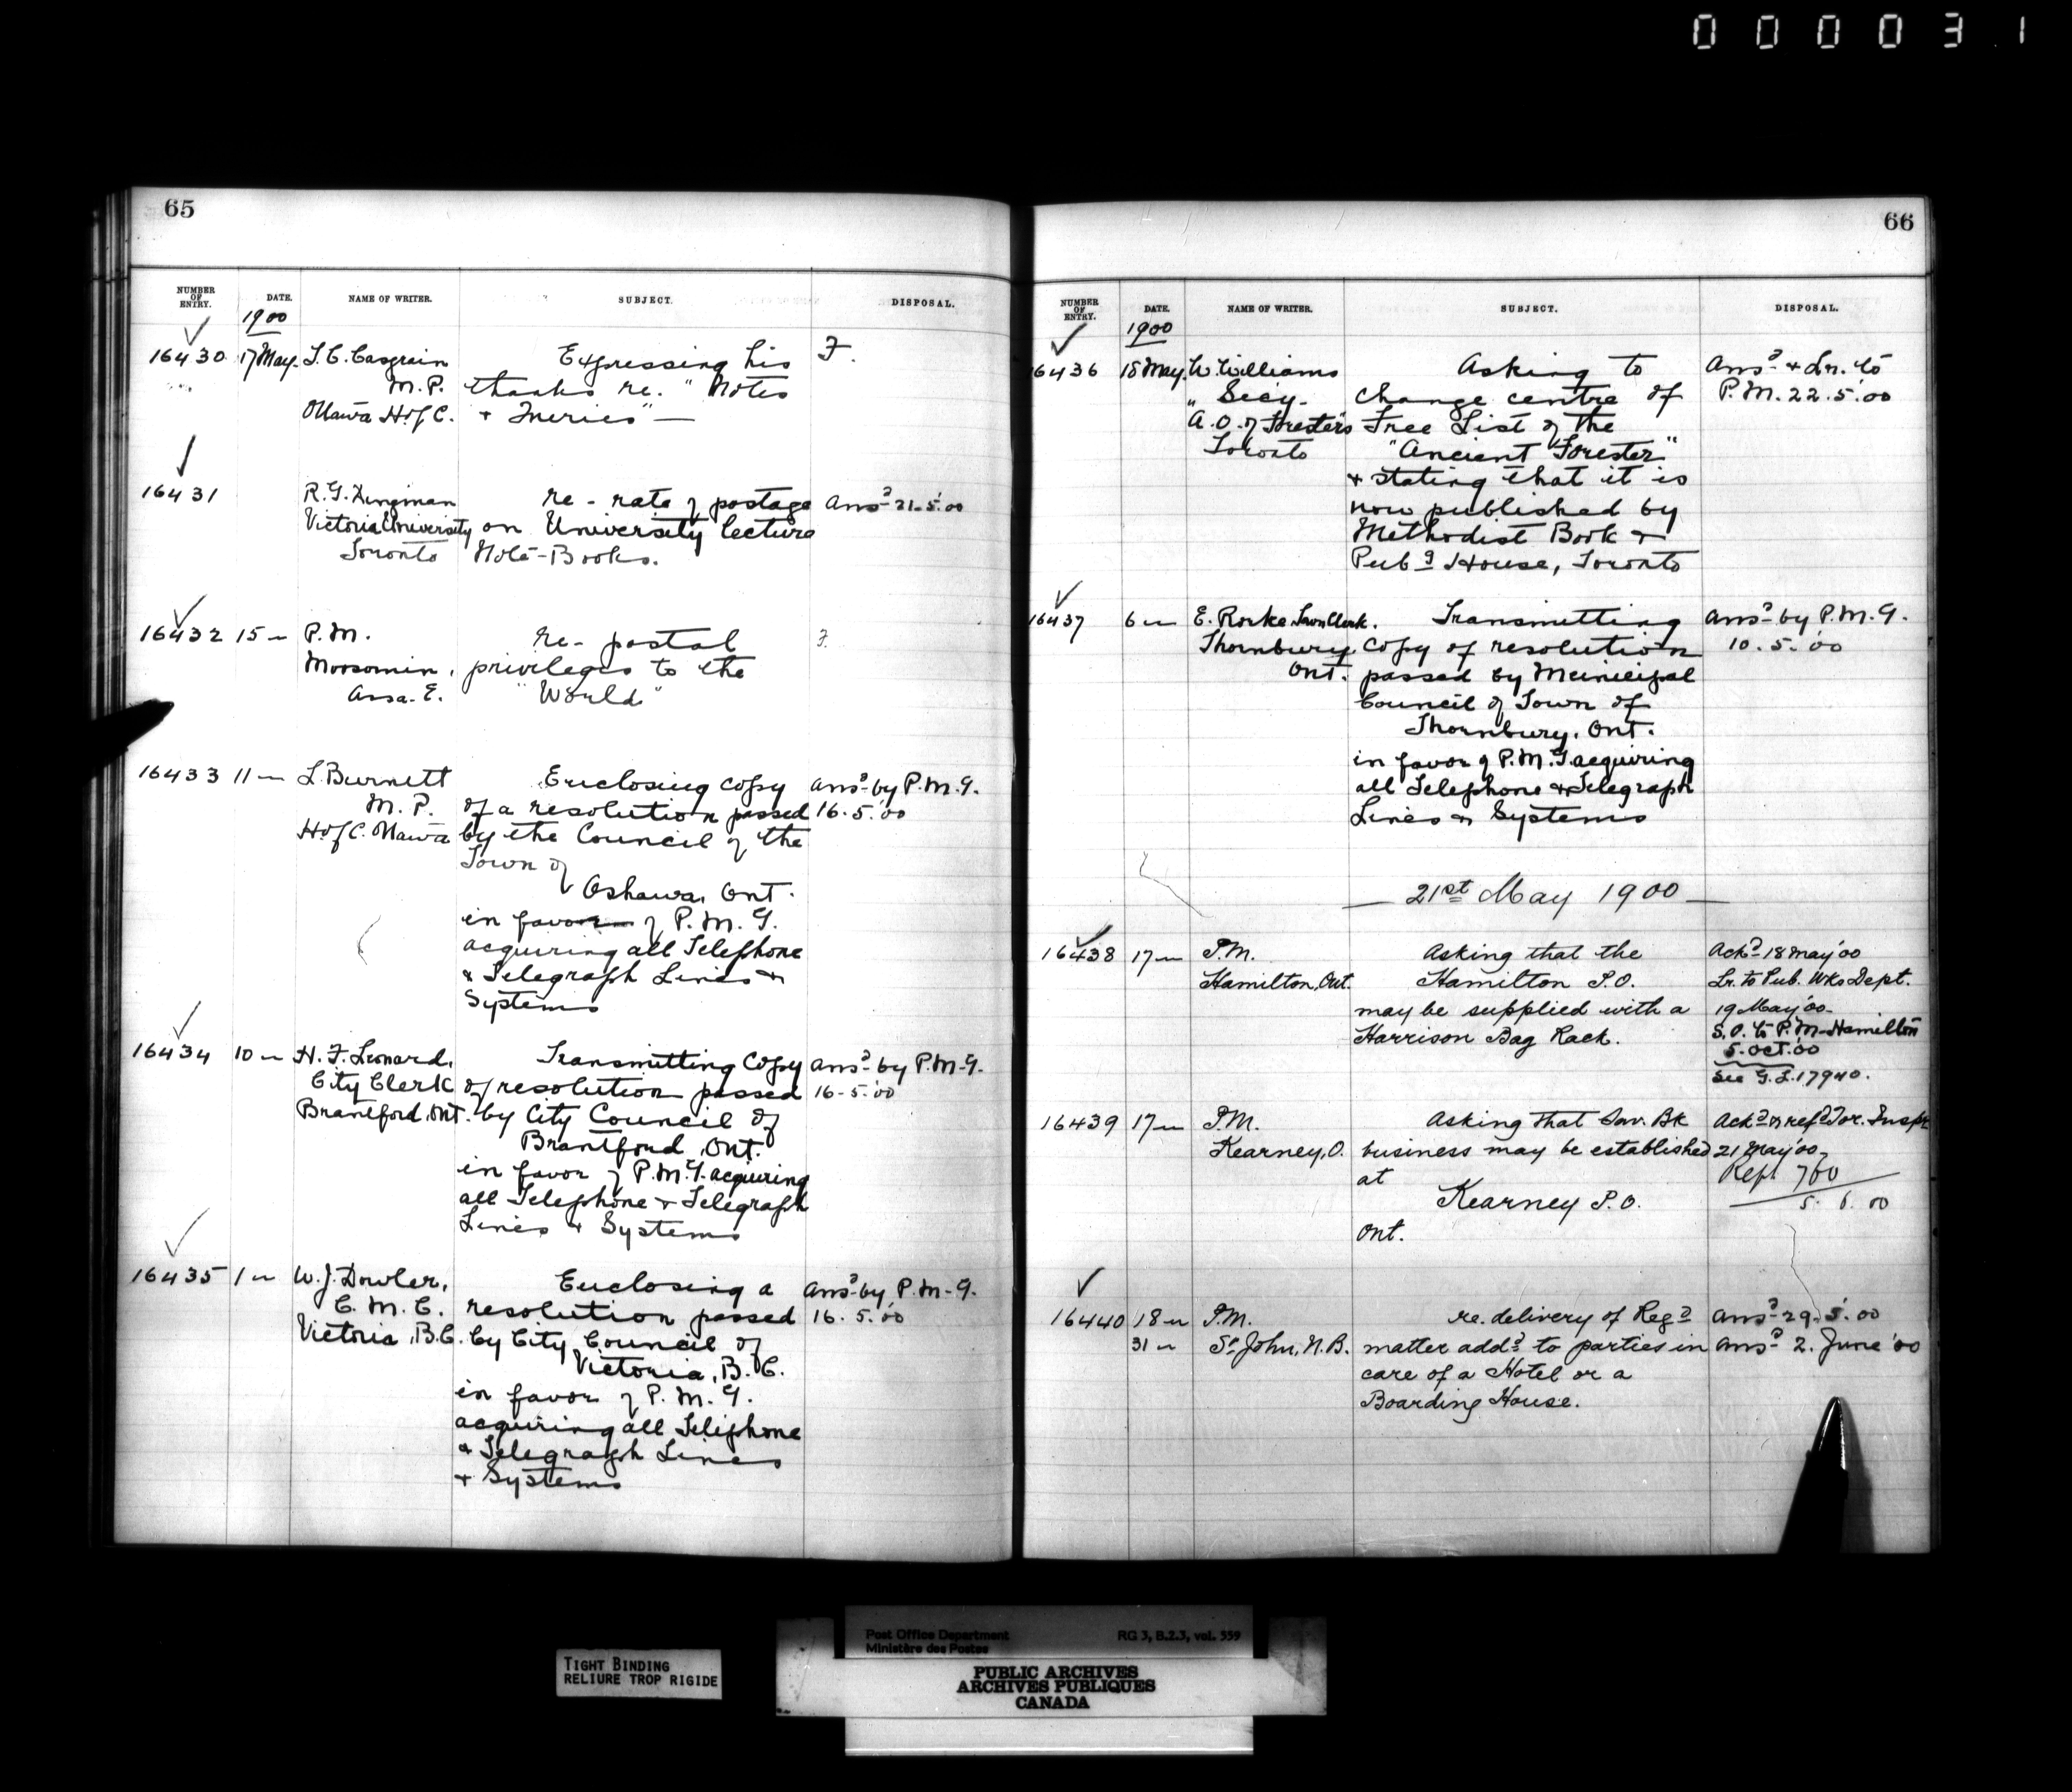 000031
65
NUMBER OF ENTRY. DATE. NAME OF WRITER. SUBJECT. DISPOSAL.
1900
16430 17 May. T. C. Casgrain Expressing his F.
M. P. thanks re. "Notes
Ottawa H. of C. & Queries" —
16431 R. G. Dingman re - rate of postage Ansd 21.5.'00
Victoria University on University lecture
Toronto Note-Books.
16432 15 " P. M. re - postal F.
Moosomin, privileges to the
Assa. E. "World"
16433 11 " L. Burnett Enclosing copy Ansd by P.M.G.
M. P. of a resolution passed 16.5.'00
H. of C. Ottawa by the Council of the
Town of
Oshawa, Ont.
in favor of P. M. G.
acquiring all Telephone
& Telegraph Lines &
Systems
16434 10 " H. F. Leonard, Transmitting Copy Ansd by P.M.G.
City Clerk of resolution passed 16-5.'00
Brantford, Ont. by City Council of
Brantford, Ont.
in favor of P.M.G. acquiring
all Telephone & Telegraph
Lines & Systems
16435 1 " W. J. Dowler, Enclosing a Ansd by P.M.G.
C. M. C. resolution passed 16.5.'00
Victoria, B.C. by City Council of
Victoria, B. C.
in favor of P. M. G.
acquiring all Telephone
& Telegraph Lines
& Systems
66
NUMBER OF ENTRY. DATE. NAME OF WRITER. SUBJECT. DISPOSAL.
1900
16436 18 May. W. Williams Asking to Ansd & Lr. to
" Secy. change centre of P.M. 22.5.'00
A. O. of Foresters Free List of the
Toronto "Ancient Forester"
& stating that it is
now published by
Methodist Book &
Pubg House, Toronto
16437 6 " E. Rorke Town Clerk. Transmitting Ansd by P.M.G.
Thornbury, copy of resolution 10.5.'00
Ont. passed by Municipal
Council of Town of
Thornbury, Ont.
in favor of P.M.G. acquiring
all Telephone & Telegraph
Lines & Systems
— 21st May 1900 —
16438 17 " P.M. Asking that the Ackd 18 May '00
Hamilton, Ont. Hamilton P.O. Lr. to Pub. Wks Dept.
may be supplied with a 19 May '00
Harrison Bag Rack. S.O. to P.M. Hamilton
5. Oct. '00
See G.L. 17940.
16439 17 " P.M. Asking that Sav. Bk Ackd & refd Tor. Inspr
Kearney, O. business may be established 21 May '00
at Rept 760
Kearney P.O. 5. 6. 00
Ont.
16440 18 " P.M. re. delivery of Regd Ansd 29.5.'00
31 " St John, N.B. matter addd to parties in Ansd 2. June '00
care of a Hotel or a
Boarding House.
TIGHT BINDING
RELIURE TROP RIGIDE
Post Office Department RG 3, B.2.3, vol. 559
Ministère des Postes
PUBLIC ARCHIVES
ARCHIVES PUBLIQUES
CANADA